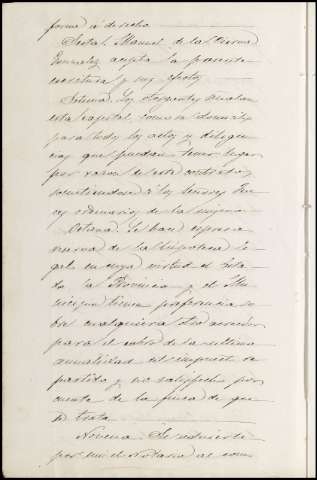 forme á derecho
Sesta. Manuel de la Cierva
González acepta la presente
escritura y sus efectos
Sétima. Los otorgantes señalan
esta capital, como su domicilio
para todos los actos y diligen
cias que puedan tener lugar
por razon de este contrato,
sometiendose á los Señores Jue
ces ordinarios de la misma
Octava. Se hace espresa
reserva de la hipoteca le
gal en cuya virtud el Esta
do la Provincia y el Mu
nicipio tienen preferencia so
bre cualquiera otro acreedor
para el cobro de la ultima
anualidad del impuesto re
partido y no satisfecho por
cuenta de la finca de que
se trata
Novena. Se advierte
por mi el Notario al com